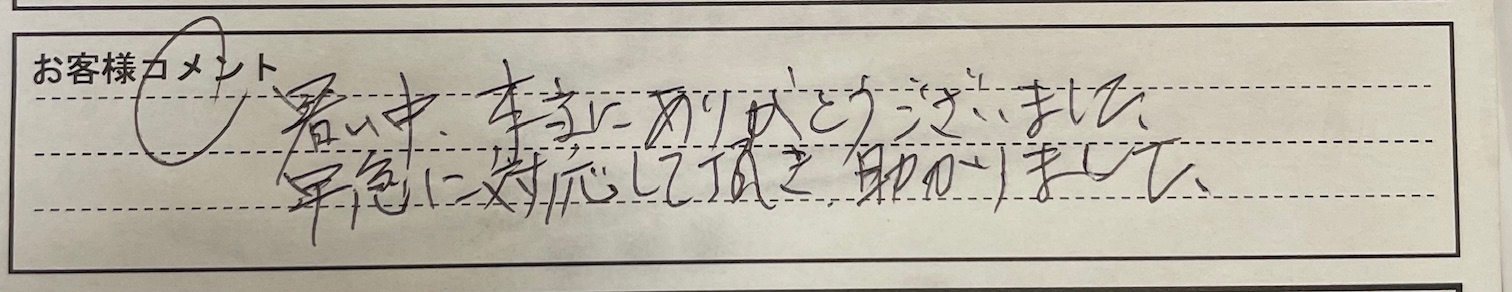 お客様コメント
暑い中、本当にありがとうございました、
早急に対応して頂き、助かりました、